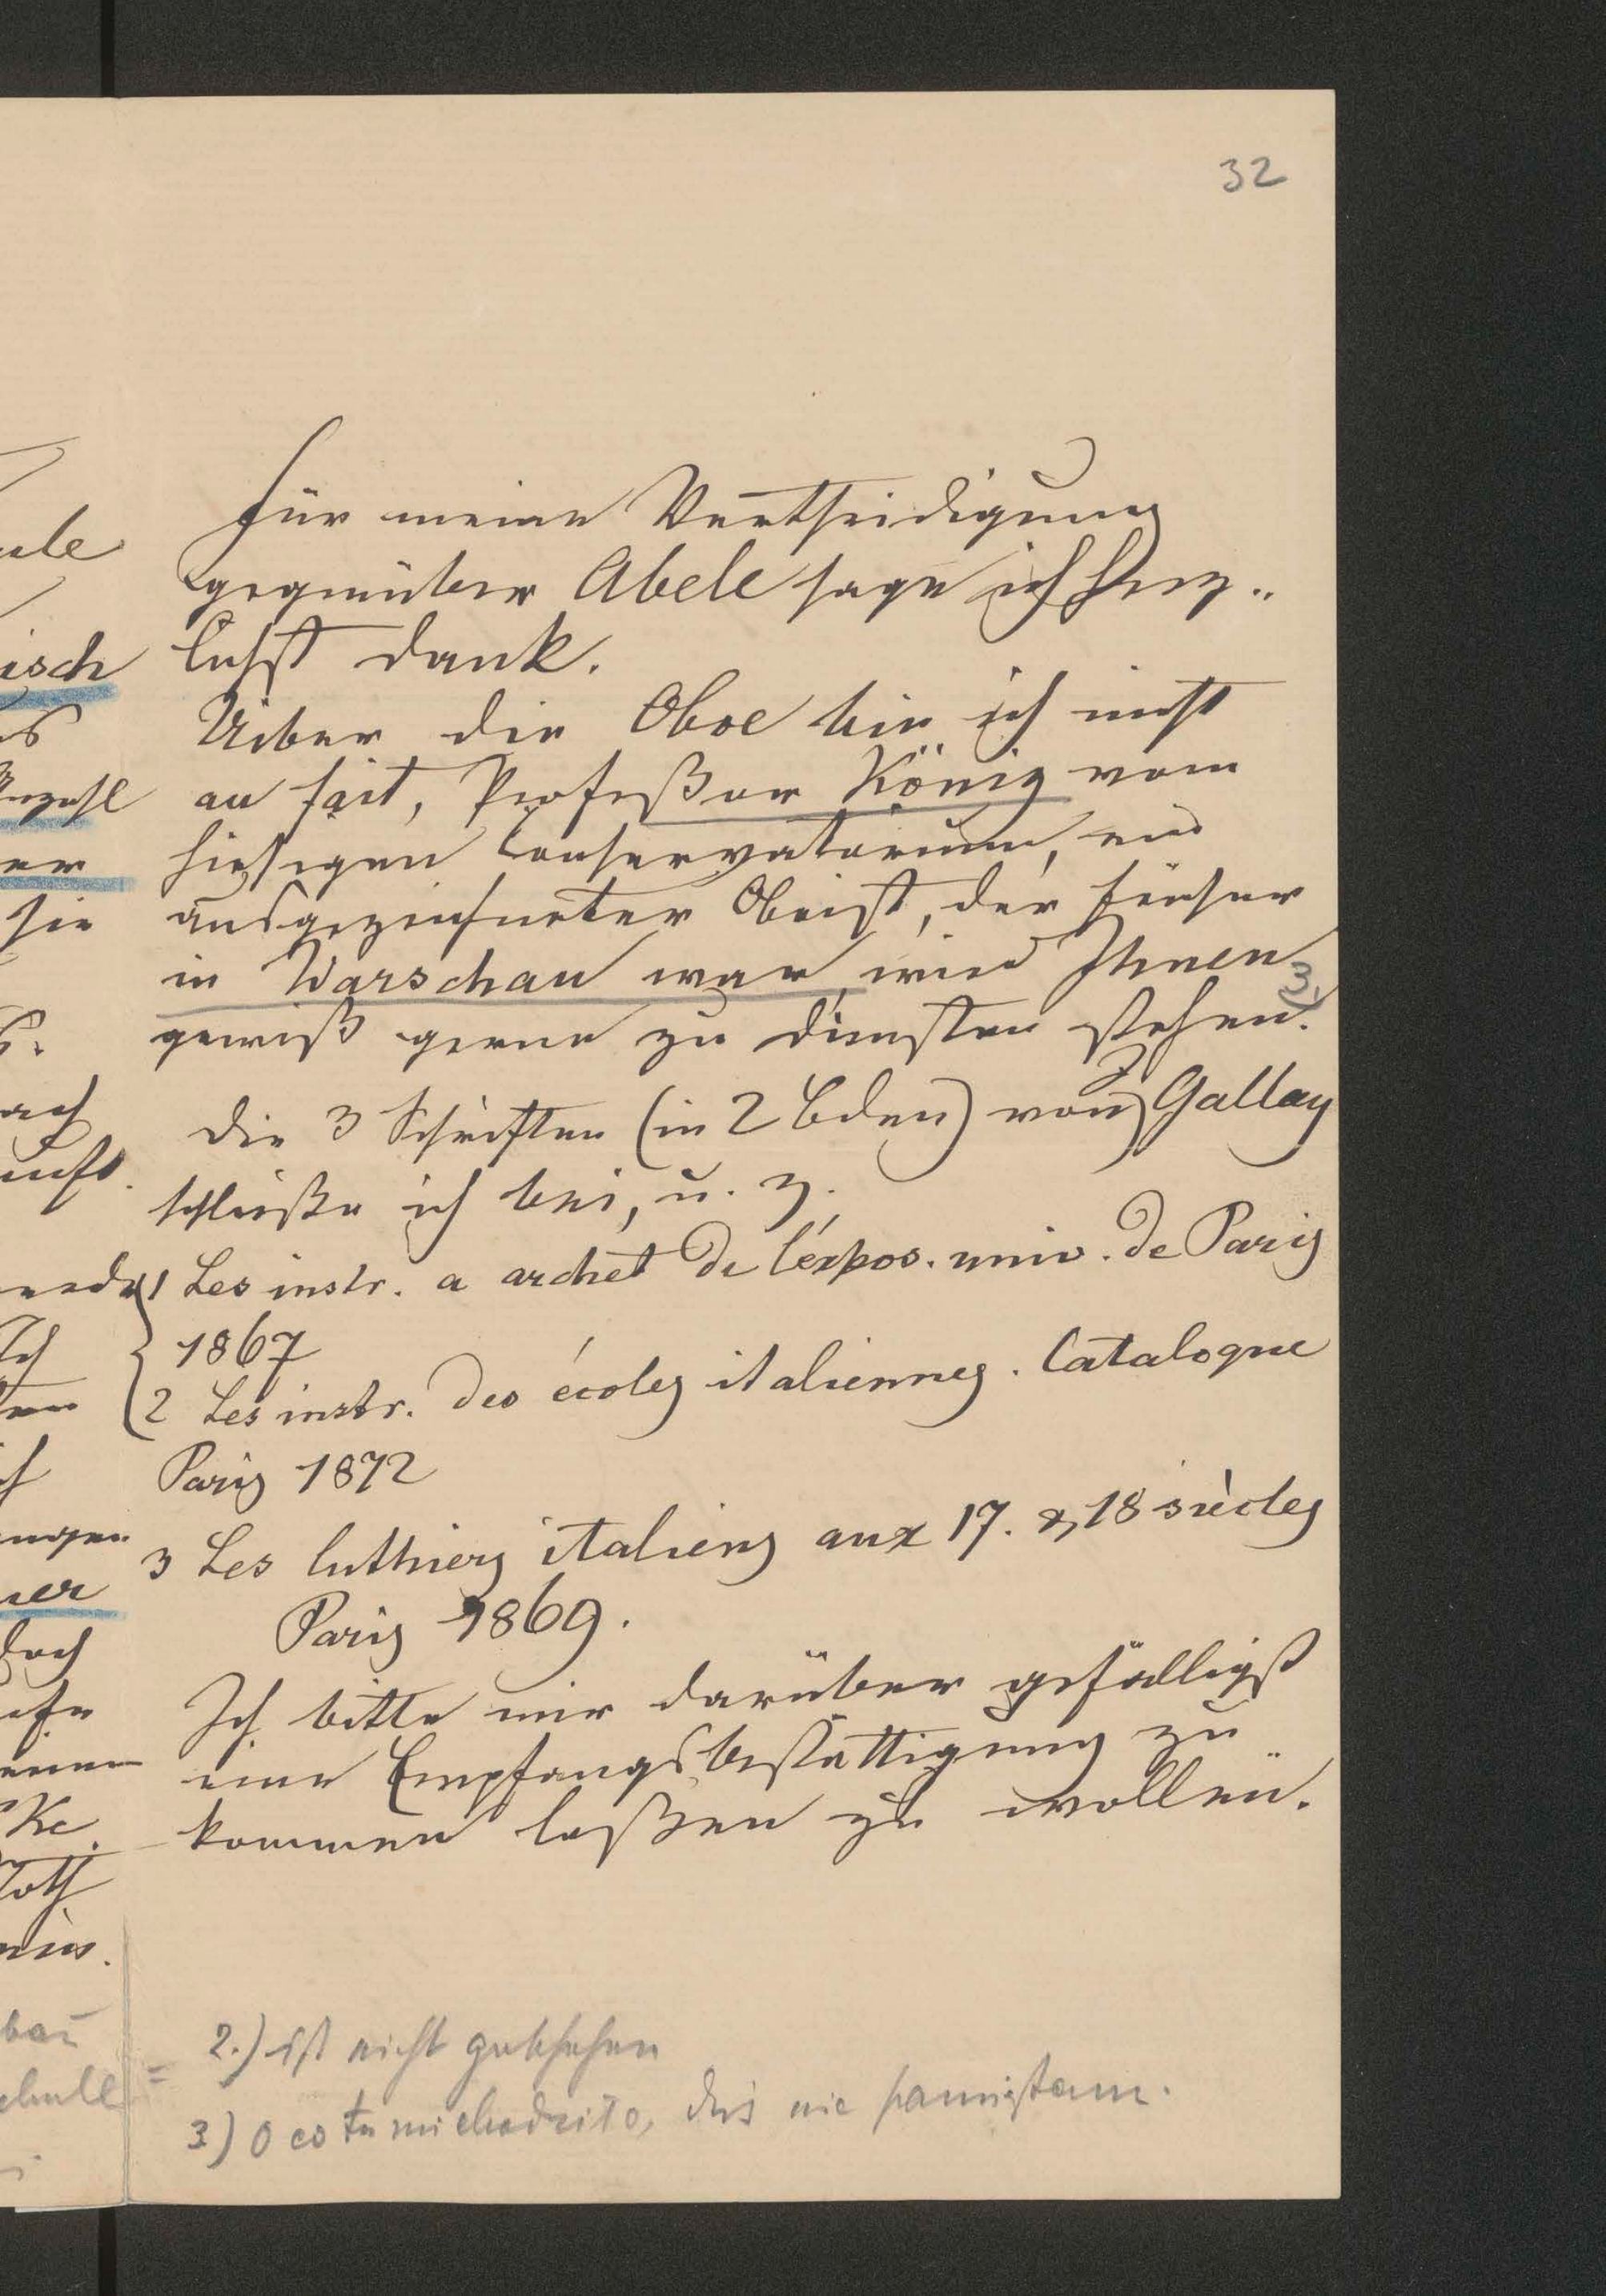 32
Für meine Vertheidigung
gegenüber Abele sage ich herz-
lichst Dank.
Ueber die Oboe bin ich nicht
au fait, Profeßor König vom
hiesigen Conservatorium, ein
ausgezeichneter Oboist, der früher
in Warschau war, wird Ihnen
gewiß gerne zu Diensten stehen. 3)
Die 3 Schriften (in 2 Bden) von J Gallay
schließe ich bei, u. z.
1 Les instr. a archet de l'éxpos. univ. de Paris
1867
2 Les instr. des écoles italiennes. Catalogue
Paris 1872
3 Les luthiers italiens aux 17. & 18 siècles
Paris 1869.
Ich bitte mir darüber gefälligst
eine Empfangsbestättigung zu
kommen laßen zu wollen.
2.) ist nicht geschehen
3) O co tu mi chodziło, dziś nie pamiętam.